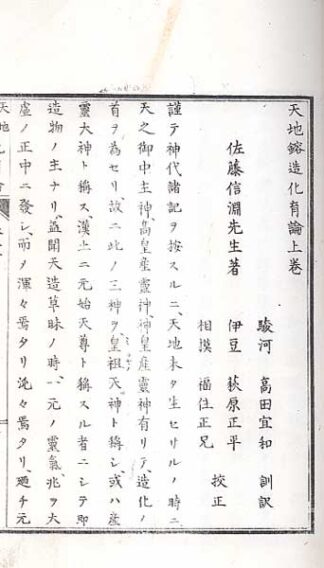 天地鎔造化育論上巻
佐藤信淵先生著
駿河 高田宜和 訓訳
伊豆 萩原正平
相模 福住正兄 校正
謹テ神代諸記ヲ按スルニ、天地未タ生セサルノ時ニ
天之御中主神、高皇産靈神、神皇産靈神有リテ、造化ノ
首ヲ為セリ故ニ此ノ三神ヲ、皇祖天神ト稱シ、或ハ産
靈大神ト稱ス、漢土ニ元始天尊ト稱スル者ニシテ即
造物ノ主ナリ、蓋開天造草昧ノ時ハ一元ノ靈氣、兆ヲ大
虚ノ正中ニ發シ、而ヲ渾々焉タリ沌々焉タリ、廼チ元